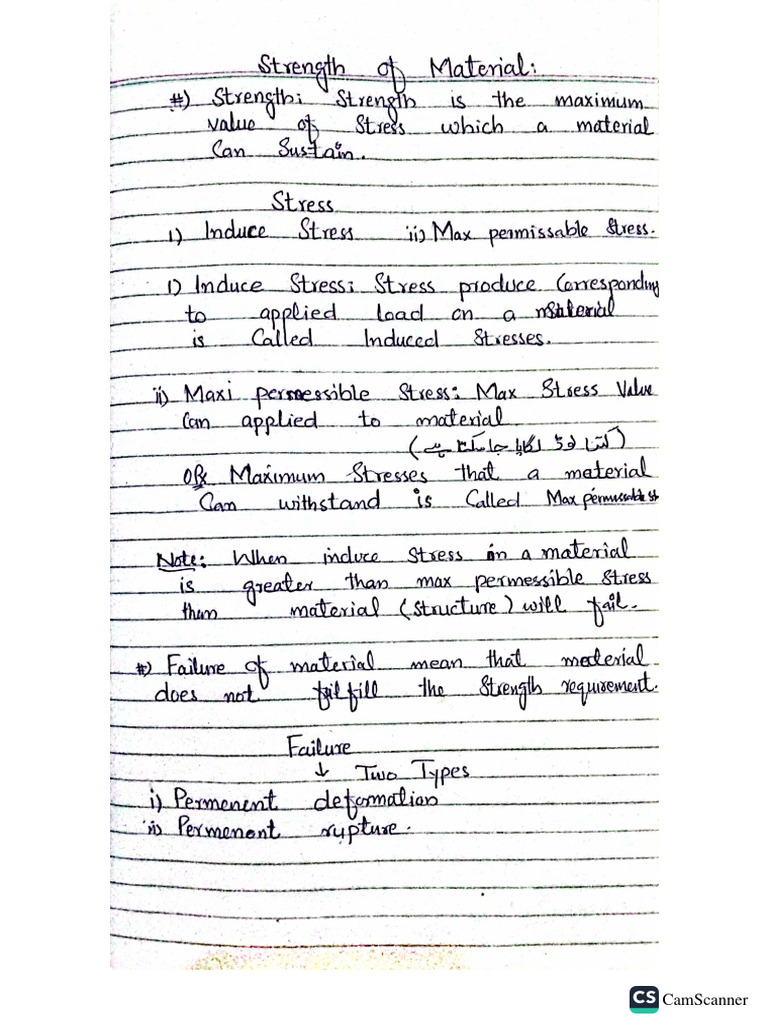 Strength of Material:
#) Strength: Strength is the maximum
value of Stress which a material
Can Sustain.
Stress
i) Induce Stress ii) Max permissable Stress.
i) Induce Stress: Stress produce Corresponding
to applied load on a material
is Called Induced Stresses.
ii) Maxi permessible Stress: Max Stress Value
Can applied to material
(کتنا لوڈ لگایا جا سکتا ہے)
OR Maximum Stresses that a material
Can withstand is Called Max permussable st
Note: When induce Stress in a material
is greater than max permessible Stress
then material (Structure) will fail.
#) Failure of material mean that material
does not fulfill the Strength requirement.
Failure
↓ Two Types
i) Permenent deformation
ii) Permenent rupture.
CS CamScanner